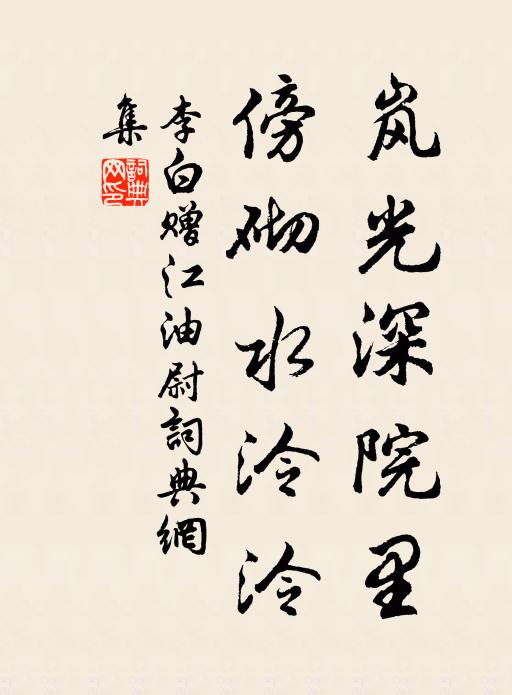 岚光深院里
傍砌水泠泠
李白赠江油尉詞典網
集
詞典網印